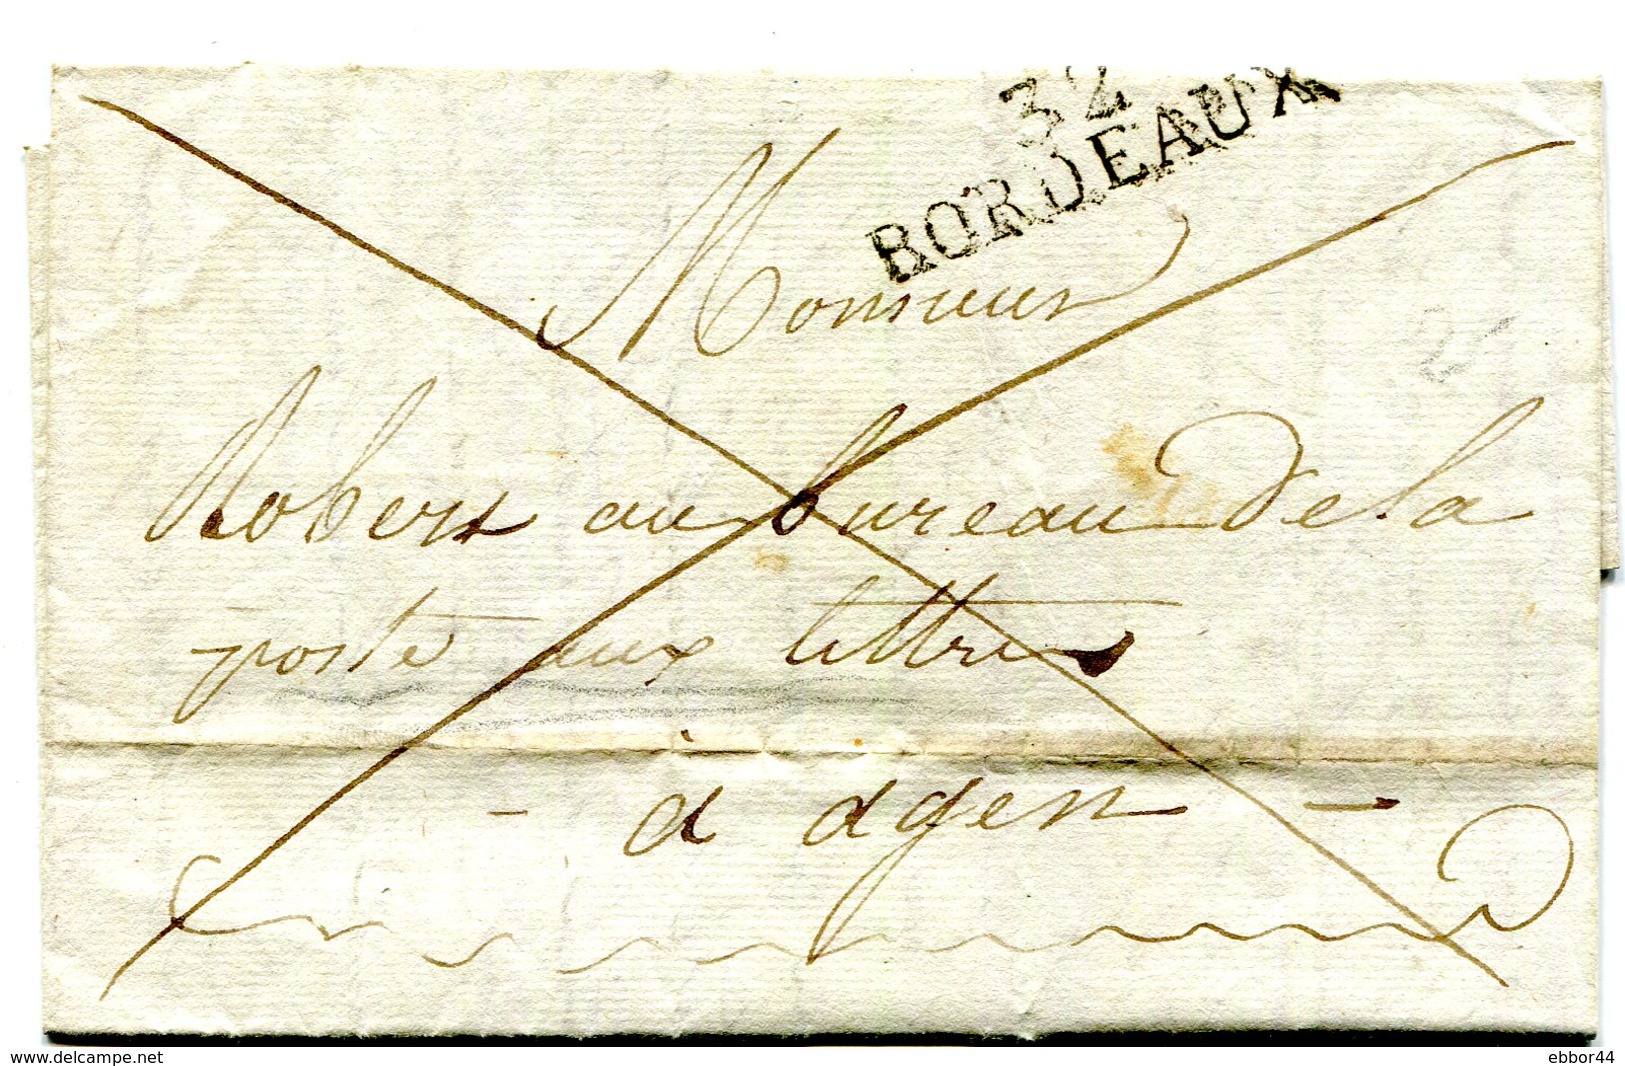 32
BORDEAUX
Monsieur
Robert au bureau De la
poste aux lettres
- à agen -
www.delcampe.net
ebbor44